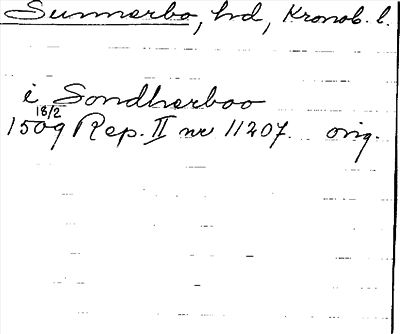 Sunnerbo, hd, Kronob. l.
i Sondherboo
18/2
1509 Rep. II nr 11207. orig.